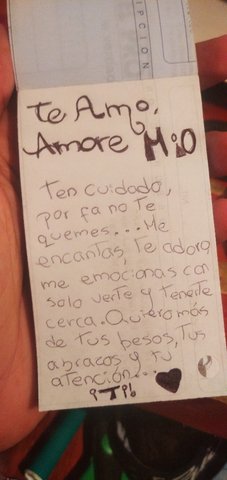 RIPCION
Te Amo,
Amore Mio
Ten cuidado,
por fa no te
quemes... Me
encantas, te adoro,
me emocionas con
solo verte y tenerte
cerca. Quiero más
de tus besos, tus
abrazos y tu
atención...